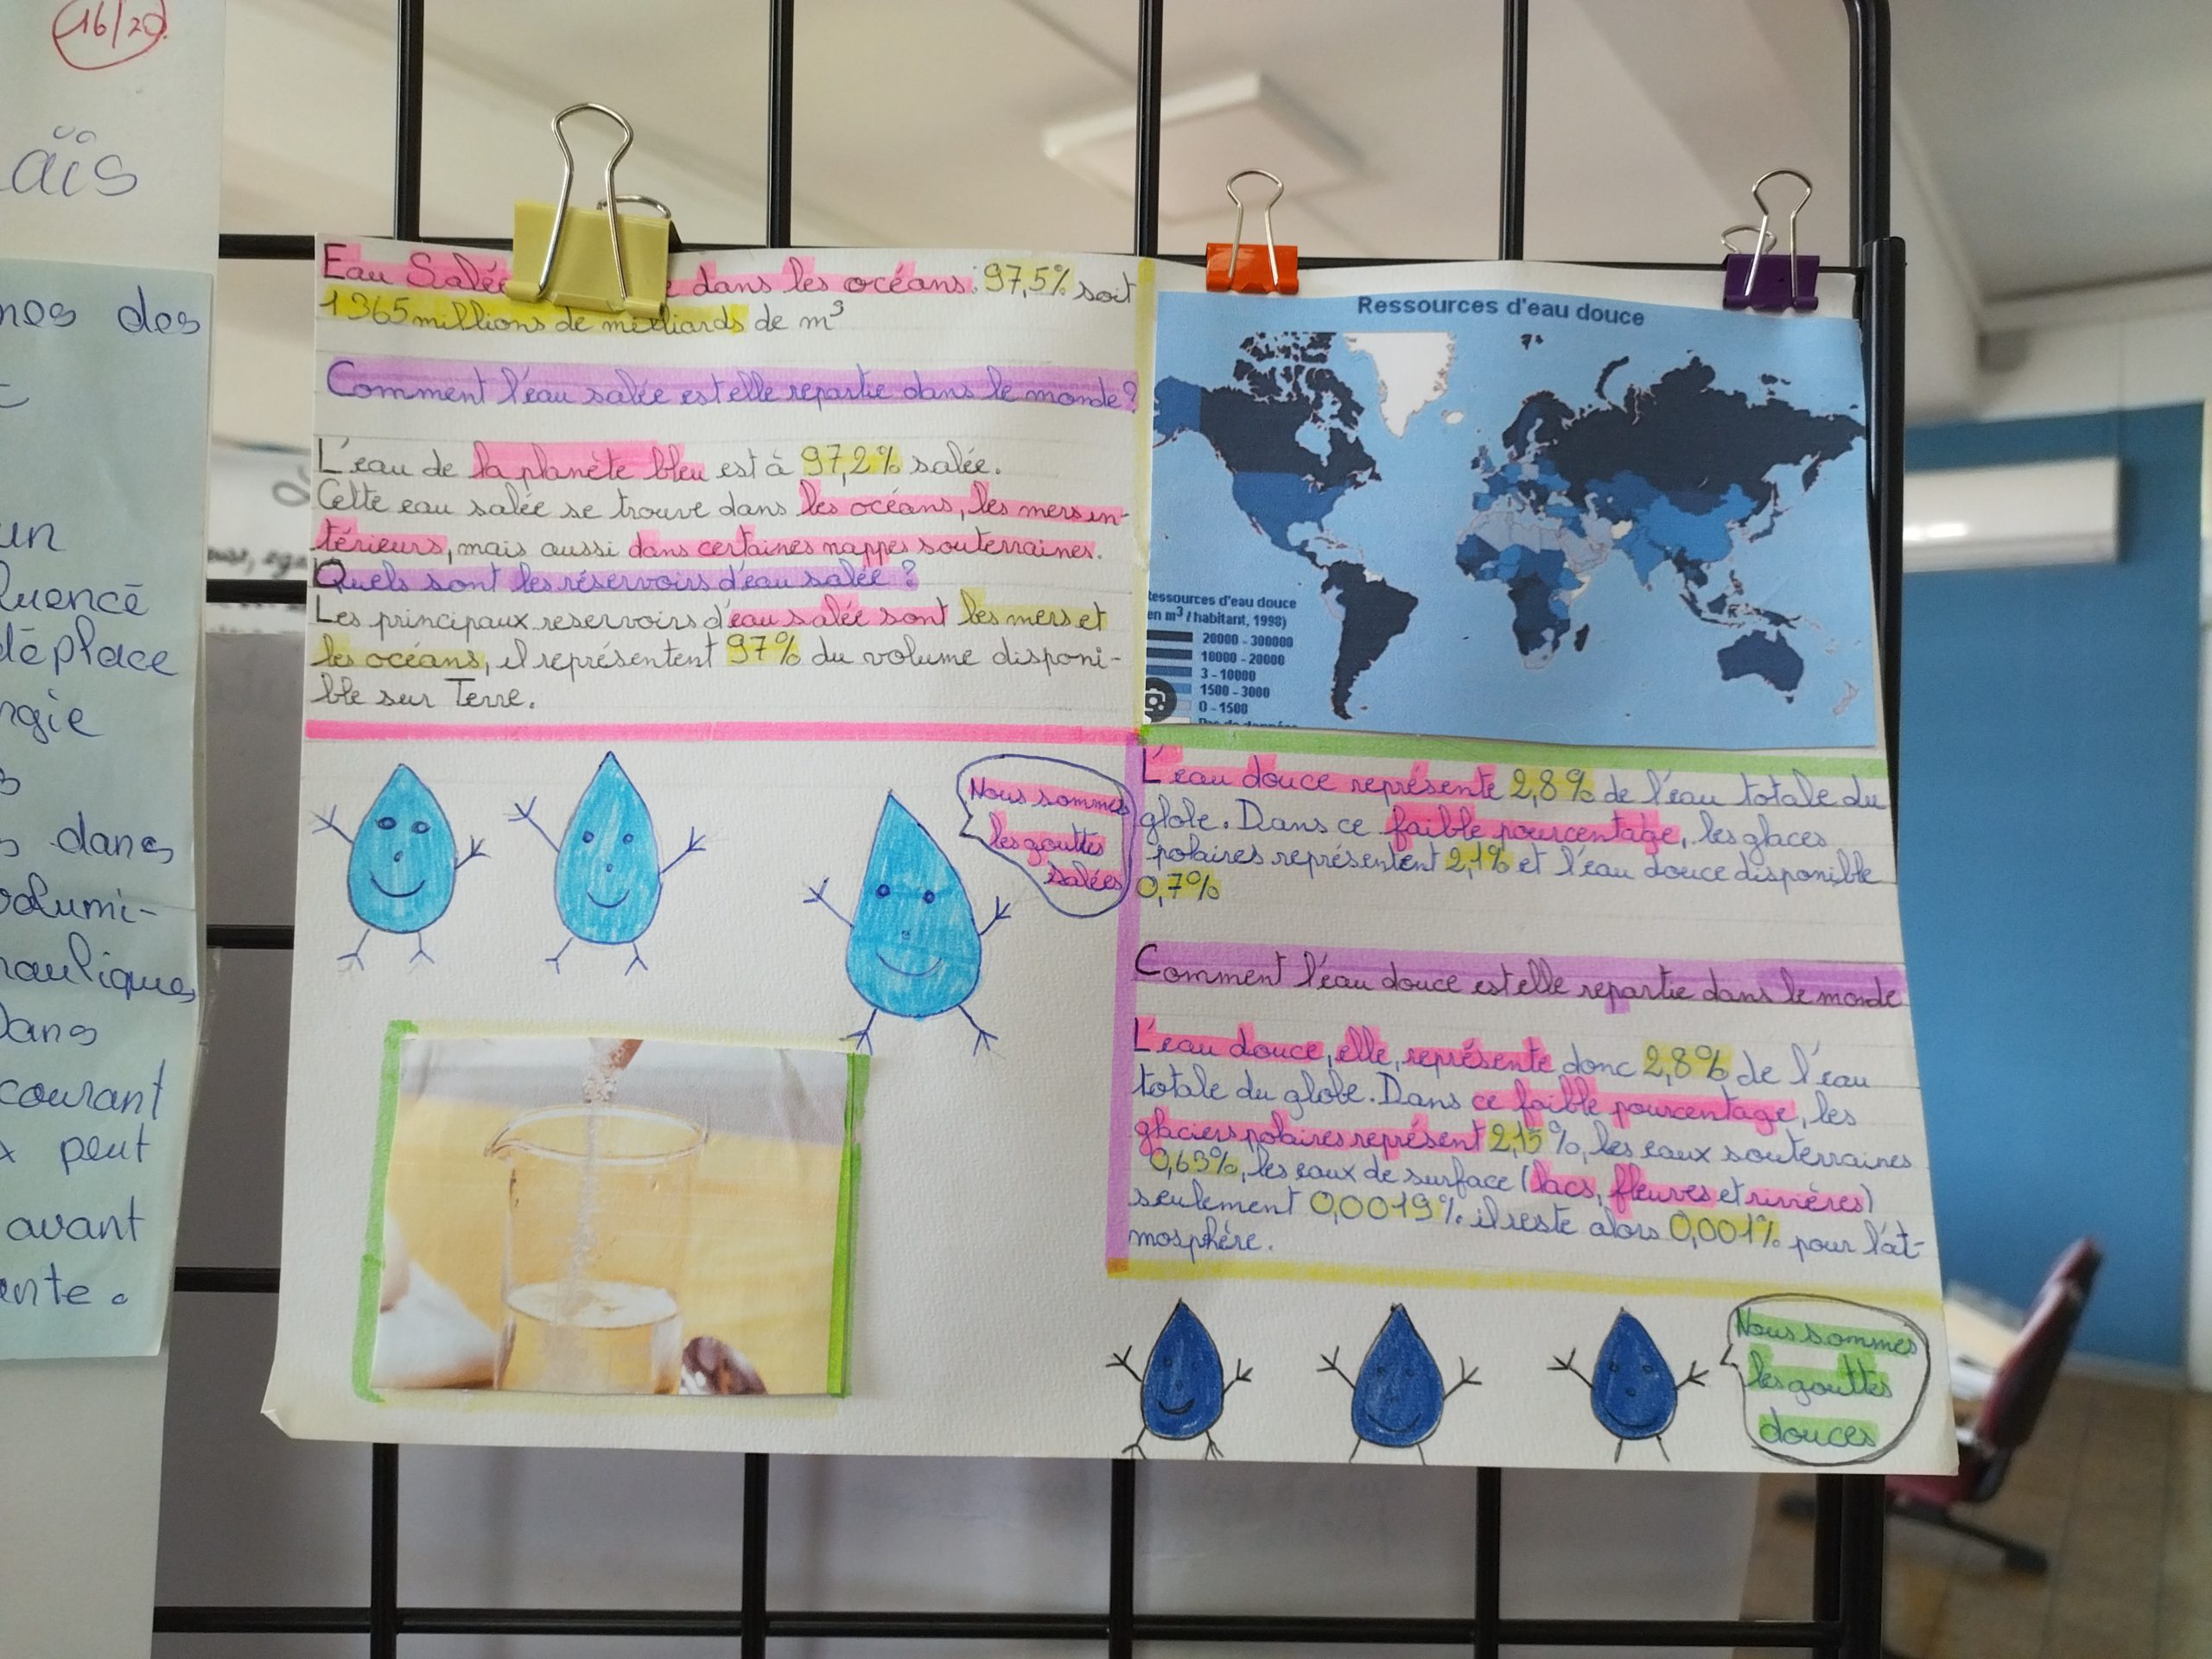 16/20
aïs
nes des
un
luencé
déplace
rgie
s dans
volumi-
rauliques
Dans
courant
x peut
avant
ante.
Eau Salée dans les océans: 97,5% soit
1365 millions de milliards de m³
Comment l'eau salée est elle repartie dans le monde?
L'eau de la planète bleu est à 97,2% salée.
Cette eau salée se trouve dans les océans, les mers in-
térieurs, mais aussi dans certaines nappes souterraines.
Quels sont les réservoirs d'eau salée?
Les principaux reservoirs d'eau salée sont les mers et
les océans, il représentent 97% du volume disponi-
ble sur Terre.
Nous sommes
les gouttes
salées
Ressources d'eau douce
Ressources d'eau douce
en m³ / habitant, 1998)
20000 - 300000
10000 - 20000
3 - 10000
1500 - 3000
0 - 1500
L'eau douce représente 2,8% de l'eau totale du
globe. Dans ce faible pourcentage, les glaces
polaires représentent 2,1% et l'eau douce disponible
0,7%
Comment l'eau douce est elle repartie dans le monde
L'eau douce, elle, représente donc 2,8% de l'eau
totale du globe. Dans ce faible pourcentage, les
glaciers polaires représent 2,15%, les eaux souterraines
0,63%, les eaux de surface (lacs, fleuves et rivières)
seulement 0,0019%. il reste alors 0,001% pour l'at-
mosphère.
Nous sommes
les gouttes
douces